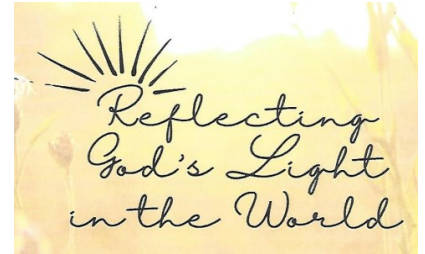 Reflecting
God's Light
in the World